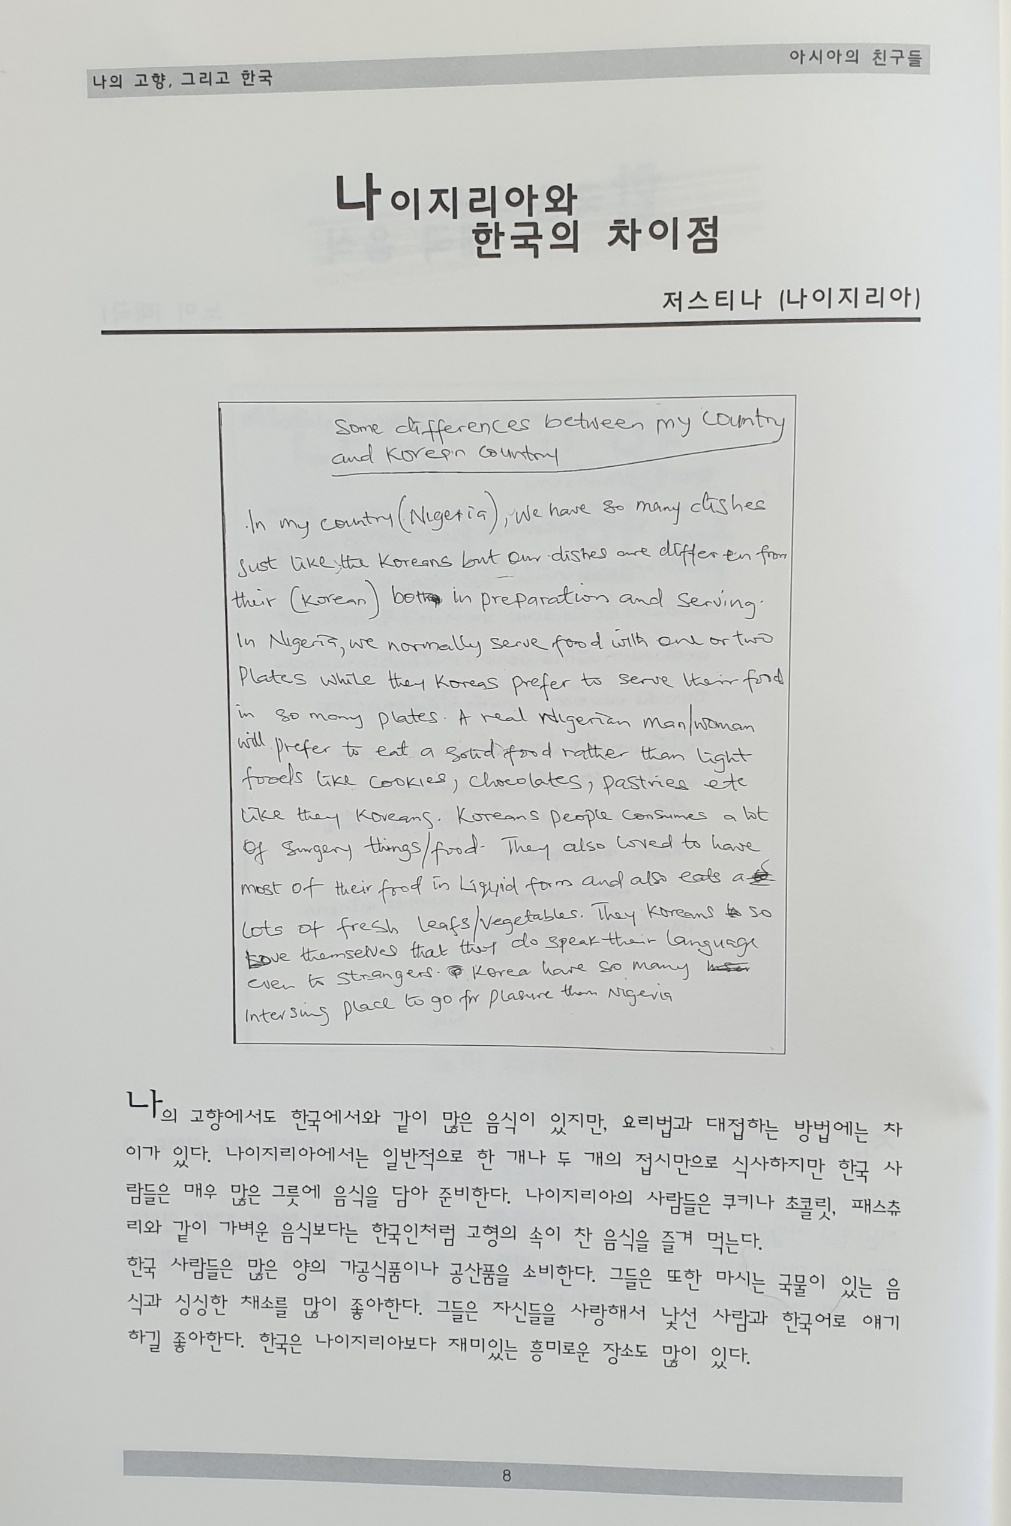 나의 고향, 그리고 한국
아시아의 친구들
나이지리아와
한국의 차이점
저스티나 (나이지리아)
Some differences between my country
and Korean country
In my country (Nigeria), we have so many dishes
just like the Koreans but our dishes are differen from
their (Korean) both in preparation and serving.
In Nigeria, we normally serve food with one or two
plates while they Koreas prefer to serve their food
in so many plates. A real Nigerian man/woman
will prefer to eat a solid food rather than light
foods like cookies, chocolates, pastries etc
like they Koreans. Koreans people consumes a lot
of surgery things/food. They also loved to have
most of their food in liquid form and also eats a
lots of fresh leafs/vegetables. They Koreans so
love themselves that they do speak their language
even to strangers. Korea have so many
intersing place to go for plasure them Nigeria
나의 고향에서도 한국에서와 같이 많은 음식이 있지만, 요리법과 대접하는 방법에는 차
이가 있다. 나이지리아에서는 일반적으로 한 개나 두 개의 접시만으로 식사하지만 한국 사
람들은 매우 많은 그릇에 음식을 담아 준비한다. 나이지리아의 사람들은 쿠키나 초콜릿, 패스츄
리와 같이 가벼운 음식보다는 한국인처럼 고형의 속이 찬 음식을 즐겨 먹는다.
한국 사람들은 많은 양의 가공식품이나 공산품을 소비한다. 그들은 또한 마시는 국물이 있는 음
식과 싱싱한 채소를 많이 좋아한다. 그들은 자신들을 사랑해서 낯선 사람과 한국어로 얘기
하길 좋아한다. 한국은 나이지리아보다 재미있는 흥미로운 장소도 많이 있다.
8